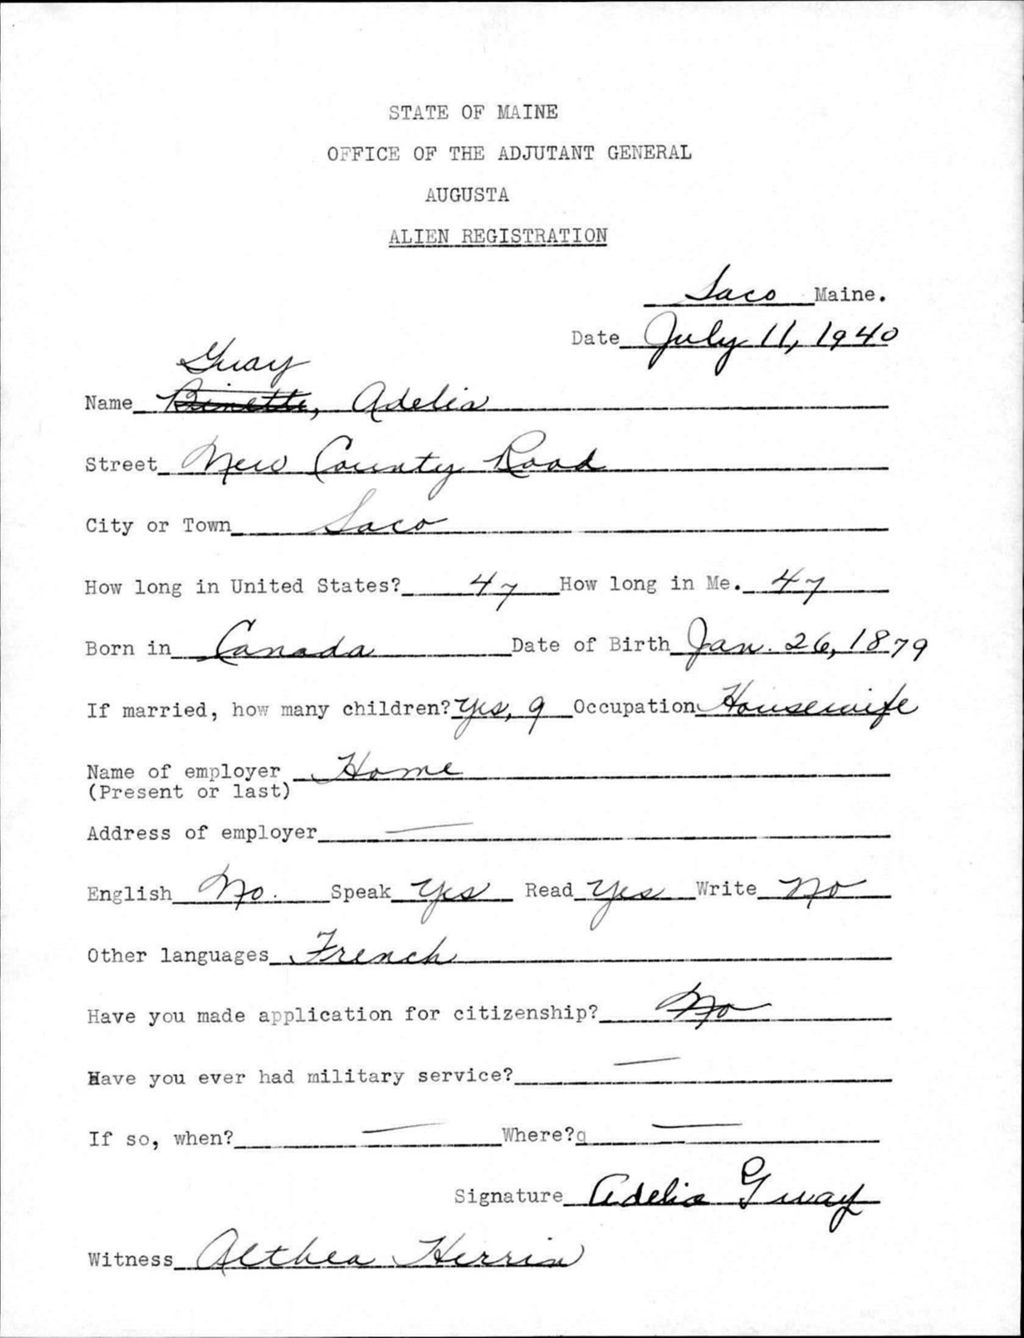 STATE OF MAINE
OFFICE OF THE ADJUTANT GENERAL
AUGUSTA
ALIEN REGISTRATION
Saco Maine.
Date July 11, 1940
Guay
Name Binette, Adelia
Street New County Road
City or Town Saco
How long in United States? 47 How long in Me. 47
Born in Canada Date of Birth Jan. 26, 1879
If married, how many children? Yes, 9 Occupation Housewife
Name of employer Home
(Present or last)
Address of employer —
English No. Speak Yes Read Yes Write No
Other languages French
Have you made application for citizenship? No
Have you ever had military service? —
If so, when? — Where? —
Signature Adelia Guay
Witness Althea Herrin